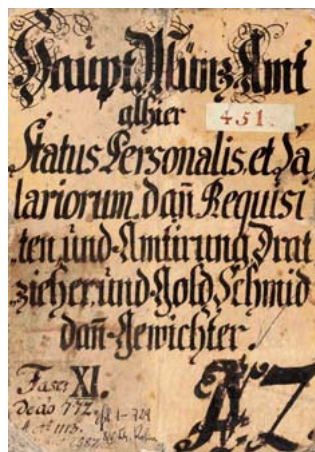 Haupt Münz Amt
alhier
451.
Status Personalis, et Sa,
lariorum, dan̄ Requisi
,ten, und Amtirung, Drat
,zieher, und Gold Schmid
dan̄ Gewichter.
Fasc: XI.
A Z
N° 1113.